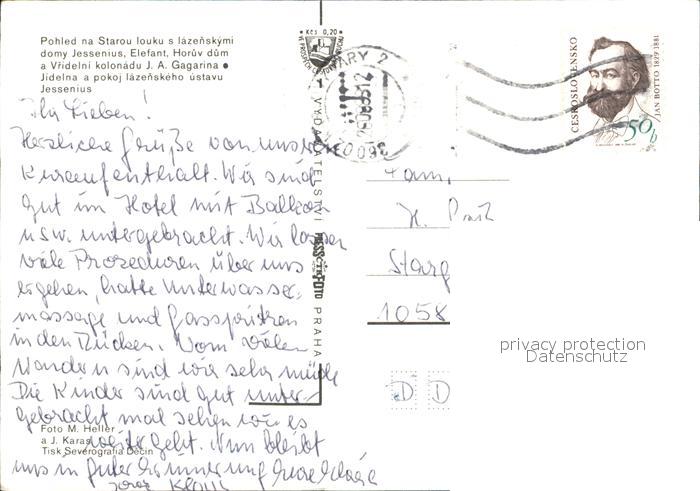 Pohled na Starou louku s lázeňskými
domy Jessenius, Elefant, Horův dům
a Vřídelní kolonádu J. A. Gagarina ●
Jídelna a pokoj lázeňského ústavu
Jessenius
Ihr Lieben!
Herzliche Grüße von unserm
Kuraufenthalt. Wir sind
gut im Hotel mit Balkon
usw. untergebracht. Wir lassen
viele Prozeduren über uns
ergehen, hatte Unterwasser-
massage und Gasspritzen
in den Rücken. Vom vielen
Wandern sind wir sehr müde
Die Kinder sind gut unter-
gebracht mal sehen wie es
weiter geht. Nun bleibt
uns in guter Erinnerung
Klaus
Foto M. Heller
a J. Karas
Tisk Severografia Děčín
Kčs 0,20
VYDAVATELSTVÍ PRESSFOTO PRAHA
VARY 2
360 03
ČESKOSLOVENSKO
JAN BOTTO 1829 1881
50 h
Fam.
H.
Starg
1058
D D
privacy protection
Datenschutz